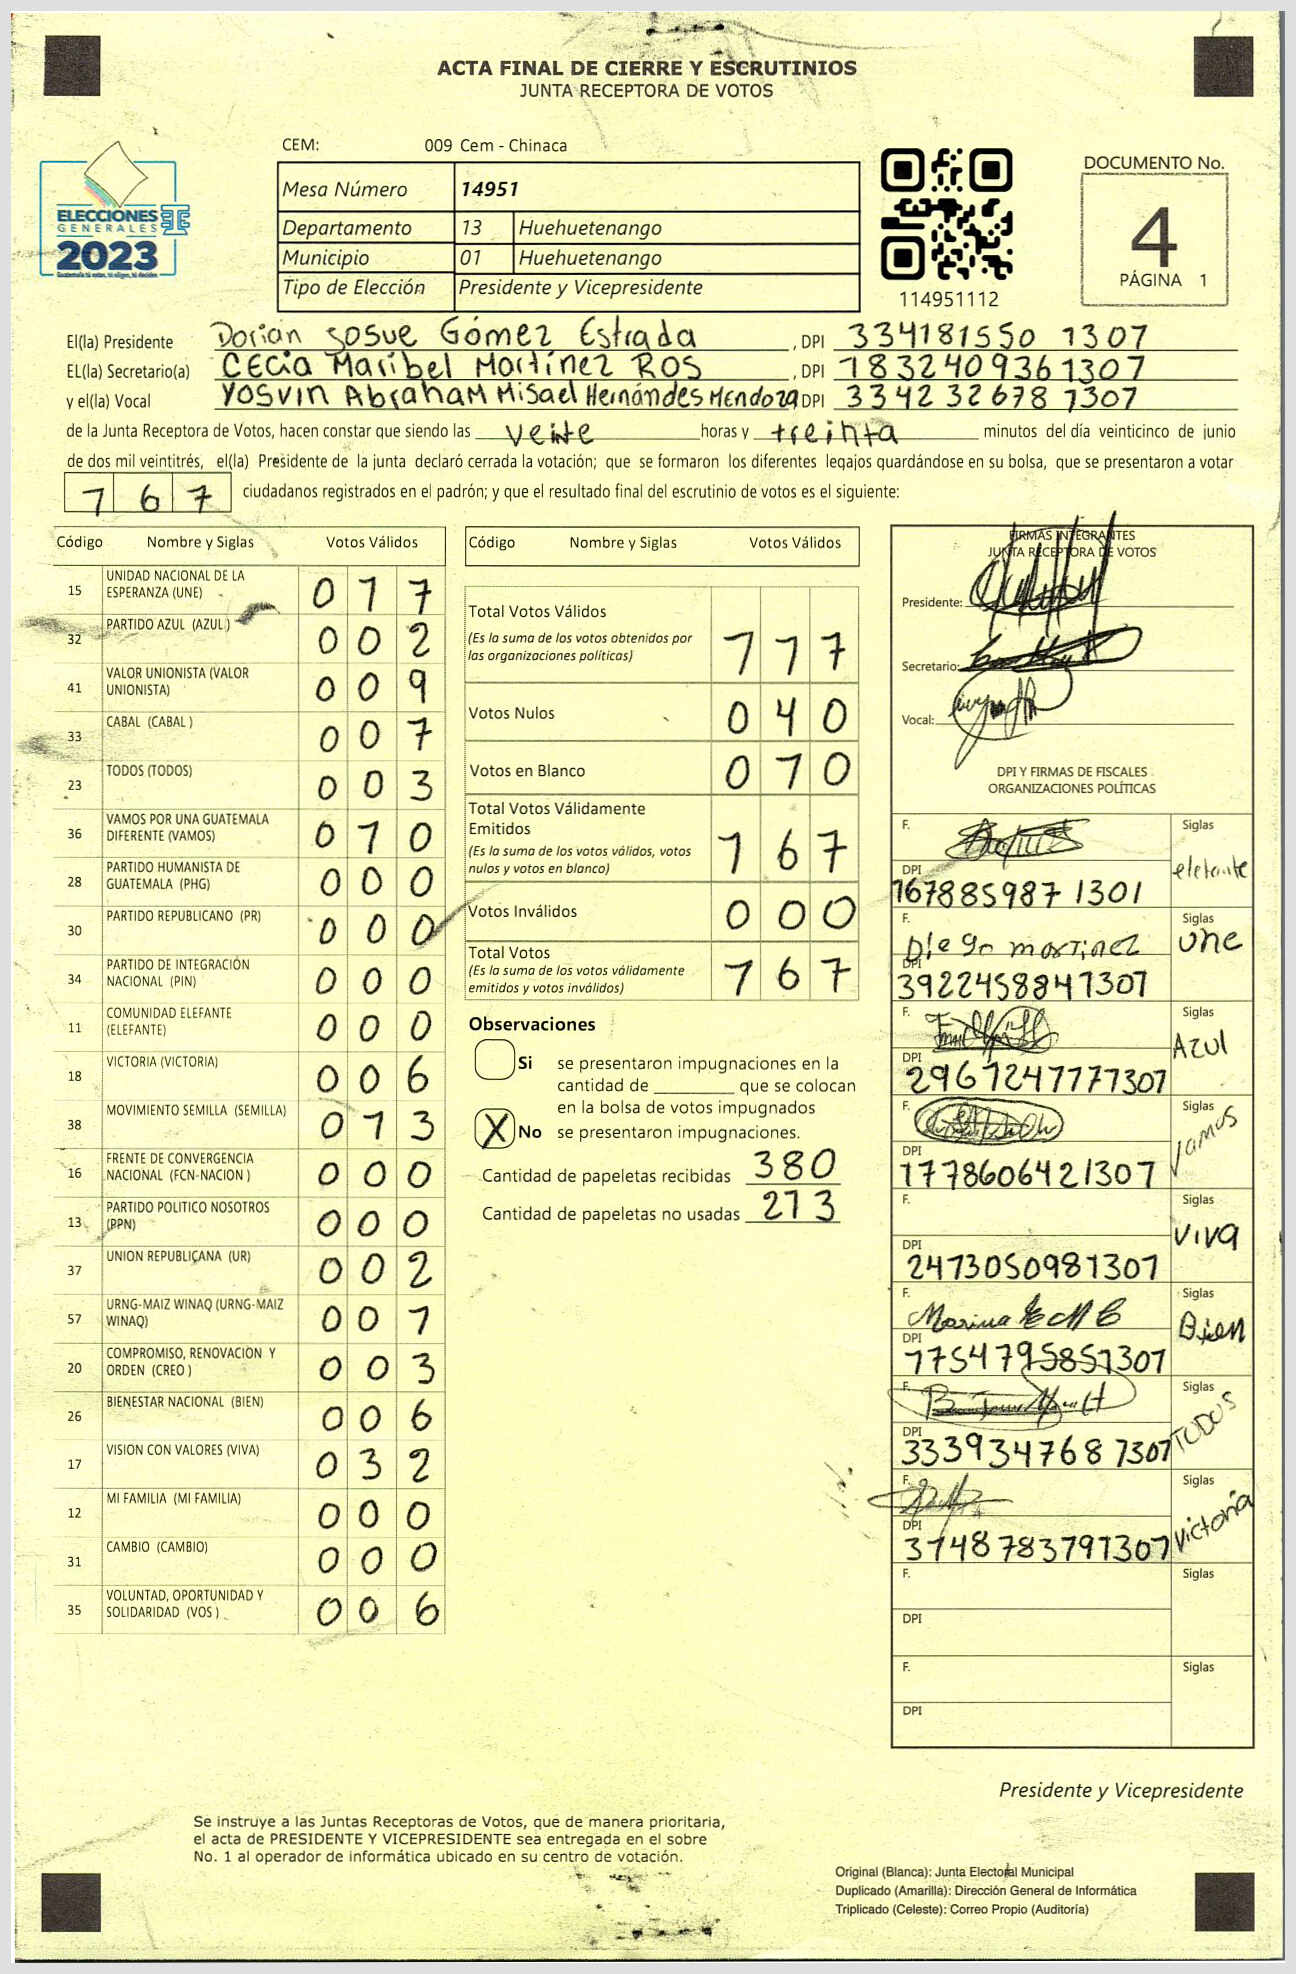 ACTA FINAL DE CIERRE Y ESCRUTINIOS
JUNTA RECEPTORA DE VOTOS
CEM: 009 Cem - Chinaca
ELECCIONES
GENERALES
2023
Guatemala tú votas, tú eliges, tú decides
Mesa Número 14951
Departamento 13 Huehuetenango
Municipio 01 Huehuetenango
Tipo de Elección Presidente y Vicepresidente
114951112
DOCUMENTO No.
4
PÁGINA 1
El(la) Presidente Dorian Josue Gómez Estrada, DPI 334181550 1307
EL(la) Secretario(a) CECia Maribel Martínez ROS, DPI 1832409361307
y el(la) Vocal Yosvin Abraham Misael Hernándes Mendoza DPI 334232678 1307
de la Junta Receptora de Votos, hacen constar que siendo las veinte horas y treinta minutos del día veinticinco de junio
de dos mil veintitrés, el(la) Presidente de la junta declaró cerrada la votación; que se formaron los diferentes legajos guardándose en su bolsa, que se presentaron a votar
1 6 7 ciudadanos registrados en el padrón; y que el resultado final del escrutinio de votos es el siguiente:
Código Nombre y Siglas Votos Válidos
15 UNIDAD NACIONAL DE LA ESPERANZA (UNE) 0 1 7
32 PARTIDO AZUL (AZUL) 0 0 2
41 VALOR UNIONISTA (VALOR UNIONISTA) 0 0 9
33 CABAL (CABAL ) 0 0 7
23 TODOS (TODOS) 0 0 3
36 VAMOS POR UNA GUATEMALA DIFERENTE (VAMOS) 0 1 0
28 PARTIDO HUMANISTA DE GUATEMALA (PHG) 0 0 0
30 PARTIDO REPUBLICANO (PR) 0 0 0
34 PARTIDO DE INTEGRACIÓN NACIONAL (PIN) 0 0 0
11 COMUNIDAD ELEFANTE (ELEFANTE) 0 0 0
18 VICTORIA (VICTORIA) 0 0 6
38 MOVIMIENTO SEMILLA (SEMILLA) 0 1 3
16 FRENTE DE CONVERGENCIA NACIONAL (FCN-NACION ) 0 0 0
13 PARTIDO POLITICO NOSOTROS (PPN) 0 0 0
37 UNION REPUBLICANA (UR) 0 0 2
57 URNG-MAIZ WINAQ (URNG-MAIZ WINAQ) 0 0 1
20 COMPROMISO, RENOVACION Y ORDEN (CREO ) 0 0 3
26 BIENESTAR NACIONAL (BIEN) 0 0 6
17 VISION CON VALORES (VIVA) 0 3 2
12 MI FAMILIA (MI FAMILIA) 0 0 0
31 CAMBIO (CAMBIO) 0 0 0
35 VOLUNTAD, OPORTUNIDAD Y SOLIDARIDAD (VOS ) 0 0 6
Código Nombre y Siglas Votos Válidos
Total Votos Válidos
(Es la suma de los votos obtenidos por
las organizaciones políticas) 1 1 7
Votos Nulos 0 4 0
Votos en Blanco 0 1 0
Total Votos Válidamente
Emitidos
(Es la suma de los votos válidos, votos
nulos y votos en blanco) 1 6 7
Votos Inválidos 0 0 0
Total Votos
(Es la suma de los votos válidamente
emitidos y votos inválidos) 1 6 7
Observaciones
Si se presentaron impugnaciones en la
cantidad de ________ que se colocan
en la bolsa de votos impugnados
X No se presentaron impugnaciones.
Cantidad de papeletas recibidas 380
Cantidad de papeletas no usadas 213
FIRMAS INTEGRANTES
JUNTA RECEPTORA DE VOTOS
Presidente:
Secretario:
Vocal:
DPI Y FIRMAS DE FISCALES
ORGANIZACIONES POLÍTICAS
F. Siglas elefante
DPI 167885987 1301
F. Diego martinez Siglas une
DPI 3922458841307
F. Siglas Azul
DPI 2961247771307
F. Siglas vamos
DPI 1778606421307
F. Siglas viva
DPI 2473050981307
F. Marina Siglas Bien
DPI 1754795851307
F. Siglas TODOS
DPI 333934768 1307
F. Siglas victoria
DPI 3148783791307
F. Siglas
DPI
F. Siglas
DPI
Presidente y Vicepresidente
Se instruye a las Juntas Receptoras de Votos, que de manera prioritaria,
el acta de PRESIDENTE Y VICEPRESIDENTE sea entregada en el sobre
No. 1 al operador de informática ubicado en su centro de votación.
Original (Blanca): Junta Electoral Municipal
Duplicado (Amarilla): Dirección General de Informática
Triplicado (Celeste): Correo Propio (Auditoría)